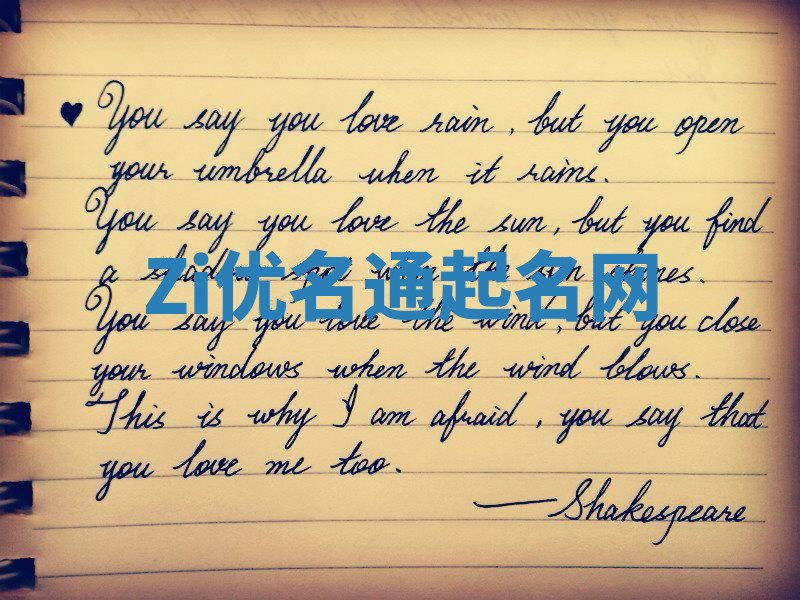 ♥ You say you love rain, but you open
your umbrella when it rains.
You say you love the sun, but you find
a shadow spot when the sun shines.
Zi优名通起名网
You say you love the wind, but you close
your windows when the wind blows.
This is why I am afraid, you say that
you love me too.
—Shakespeare